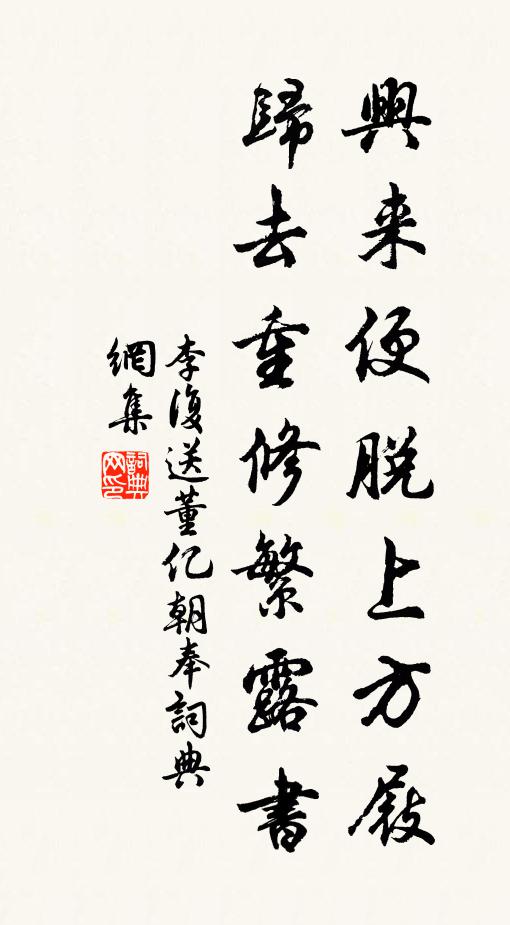 興来便脱上方屐
歸去重修繁露書
李復送董亿朝奉詞典
網集
詞典网印